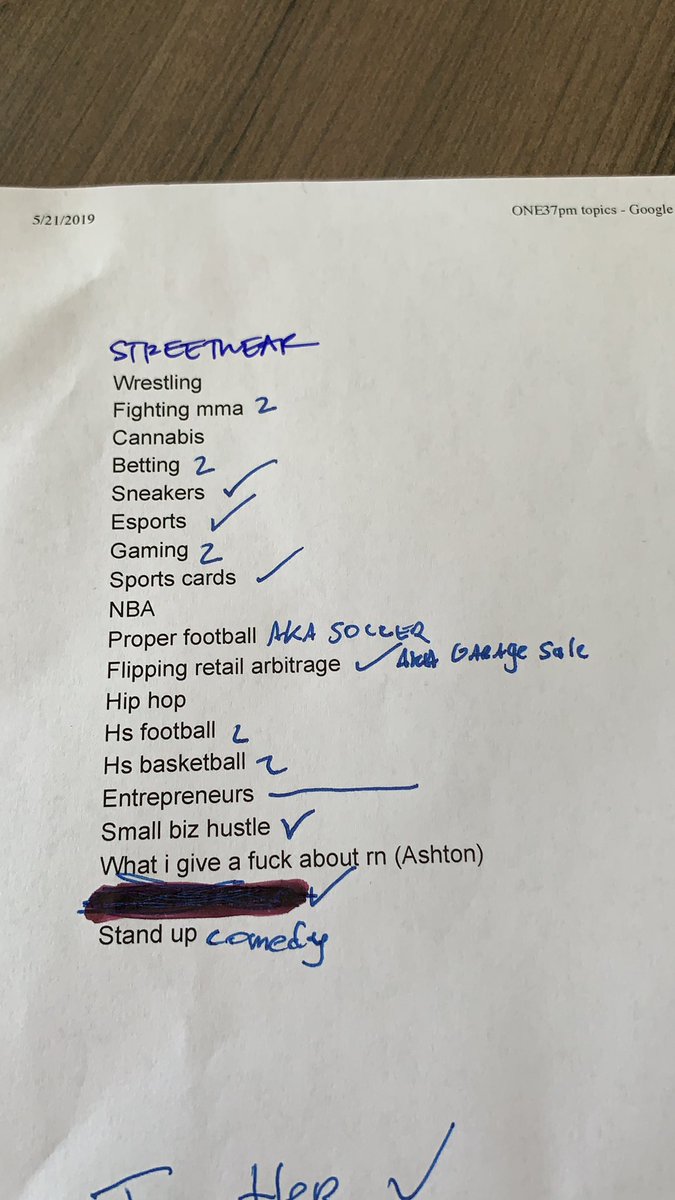 5/21/2019 ONE37pm topics - Google
STREETWEAR
Wrestling
Fighting mma 2
Cannabis
Betting 2
Sneakers ✓
Esports ✓
Gaming 2
Sports cards ✓
NBA
Proper football AKA SOCCER
Flipping retail arbitrage ✓ AKA GARAge Sale
Hip hop
Hs football 2
Hs basketball 2
Entrepreneurs
Small biz hustle ✓
What i give a fuck about rn (Ashton)
✓
Stand up comedy
✓